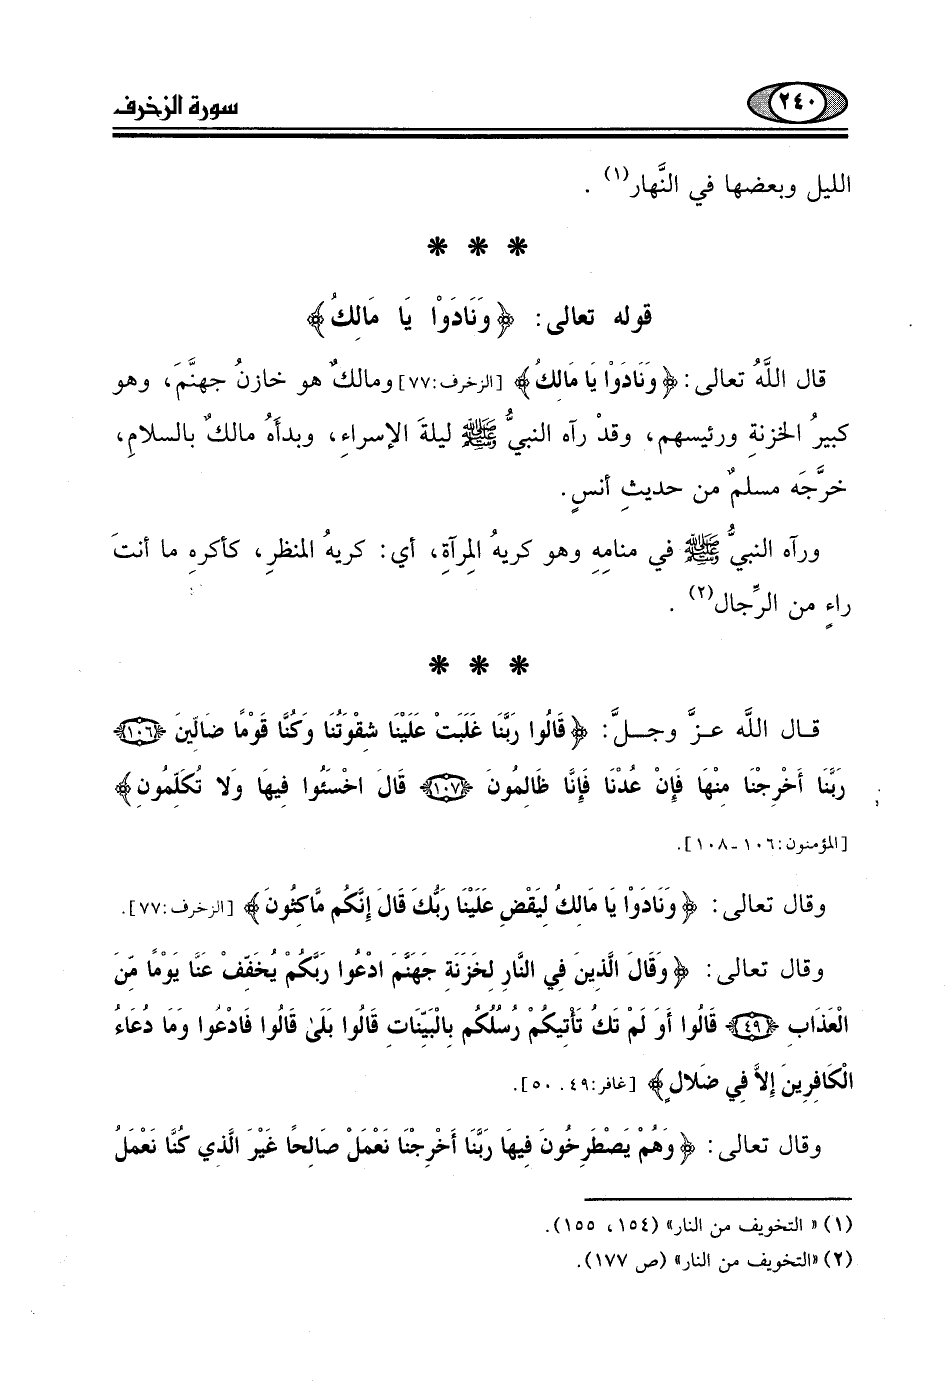 ٢٤٠ سورة الزخرف
الليل وبعضها في النَّهار(١) .
* * *
قوله تعالى: ﴿وَنَادَوْا يَا مَالِكُ﴾
قال اللَّهُ تعالى: ﴿وَنَادَوْا يَا مَالِكُ﴾ [الزخرف:٧٧] ومالكٌ هو خازنُ جهنَّمَ، وهو
كبيرُ الخزنةِ ورئيسهم، وقدْ رآه النبيُّ ﷺ ليلةَ الإسراءِ، وبدأَهُ مالكٌ بالسلامِ،
خرَّجَه مسلمٌ من حديثِ أنسٍ.
ورآه النبيُّ ﷺ في منامِهِ وهو كريهُ المِرآةِ، أي: كريهُ المنظرِ، كأكرهِ ما أنتَ
راءٍ من الرِّجال(٢) .
* * *
قال اللَّه عزَّ وجلَّ: ﴿قَالُوا رَبَّنَا غَلَبَتْ عَلَيْنَا شِقْوَتُنَا وَكُنَّا قَوْمًا ضَالِّينَ ﴿١٠٦﴾
رَبَّنَا أَخْرِجْنَا مِنْهَا فَإِنْ عُدْنَا فَإِنَّا ظَالِمُونَ ﴿١٠٧﴾ قَالَ اخْسَئُوا فِيهَا وَلا تُكَلِّمُونِ﴾
[المؤمنون:١٠٦-١٠٨].
وقال تعالى: ﴿وَنَادَوْا يَا مَالِكُ لِيَقْضِ عَلَيْنَا رَبُّكَ قَالَ إِنَّكُم مَّاكِثُونَ﴾ [الزخرف:٧٧].
وقال تعالى: ﴿وَقَالَ الَّذِينَ فِي النَّارِ لِخَزَنَةِ جَهَنَّمَ ادْعُوا رَبَّكُمْ يُخَفِّفْ عَنَّا يَوْمًا مِّنَ
الْعَذَابِ ﴿٤٩﴾ قَالُوا أَوَ لَمْ تَكُ تَأْتِيكُمْ رُسُلُكُم بِالْبَيِّنَاتِ قَالُوا بَلَىٰ قَالُوا فَادْعُوا وَمَا دُعَاءُ
الْكَافِرِينَ إِلاَّ فِي ضَلالٍ﴾ [غافر:٤٩، ٥٠].
وقال تعالى: ﴿وَهُمْ يَصْطَرِخُونَ فِيهَا رَبَّنَا أَخْرِجْنَا نَعْمَلْ صَالِحًا غَيْرَ الَّذِي كُنَّا نَعْمَلُ
(١) «التخويف من النار» (١٥٤، ١٥٥).
(٢) «التخويف من النار» (ص ١٧٧).